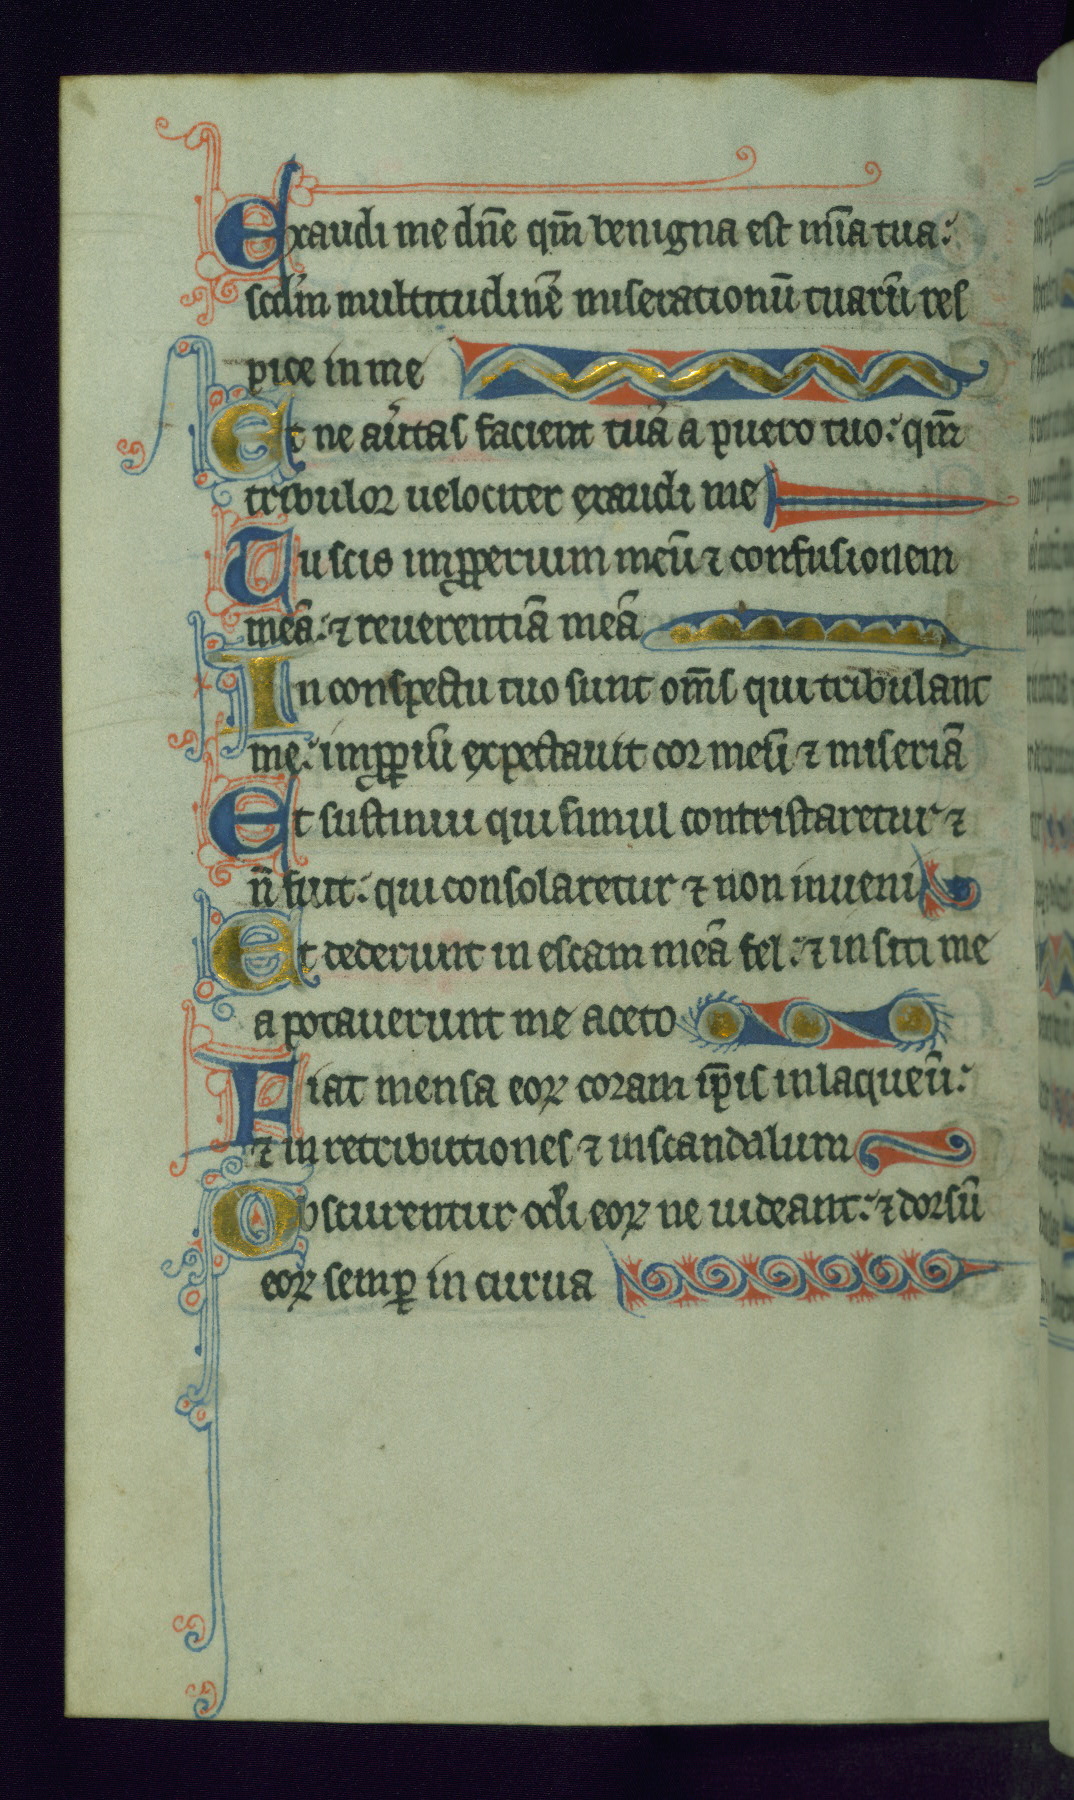 Exaudi me dn̄e qm̄ benigna est mīa tua:
scdm̄ multitudinē miserationū tuarū res
pice in me
Et ne au̾tas faciem tuā a puero tuo: qm̄
tribulor uelociter exaudi me
Tu scis impꝓperium meū ⁊ confusionem
meā: ⁊ reuerentiā meā
In conspectu tuo sunt om̄s qui tribulant
me: impꝓiū expectauit cor meū ⁊ miseriā
Et sustinui qui simul contristaretur ⁊
n̄ fuit: qui consolaretur ⁊ non inueni
Et dederunt in escam meā fel: ⁊ in siti me
a potauerunt me aceto
Fiat mensa eoꝝ coram ip̄is in laqueū:
⁊ in retributiones ⁊ in scandalum
Obscurentur oc̄li eoꝝ ne uideant: ⁊ dorsū
eoꝝ semꝑ in curua